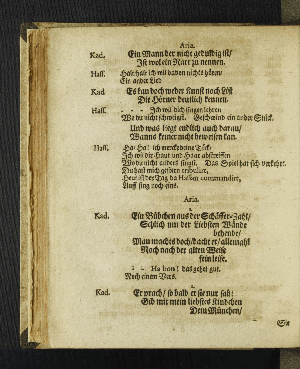 Aria.
Kad. Ein Mann der nicht gedultig ist/
Ist wol ein Narr zu nennen.
Hass. Halt/halt ich wil davon nichts hören/
Ein ander Lied
Kad. Es kan doch weder Kunst noch List
Die Hörner deutlich kennen.
Hass. - - - Ich wil dich singen lehren
Wo du nicht schweigst. Geschwind ein ander Stück.
Und was liegt endlich auch daran/
Wanns keiner nicht beweisen kan.
Hass. Ha! Ha! ich mercke deine Tück/
Ich wil dir Haut und Haar abstreiffen
Wo du nicht anders singst. Das Spiel hat sich verkehrt.
Du hast mich gestern
Heut ist der Tag da Hassen commandiret,
sing noch eins.
Aria.
Kad. Ein Bübchen aus der Schäffer-Zahl/
Schlich um der Liebsten Wände
behende/
Man machts doch/dacht er/allemahl
Noch nach der alten Weiß
fein leise.
- - Ha bon! das gehet gut.
Noch einen Vers.
2.
Kad. Er sprach/ so bald er sie nur sah:
Gib mir mein liebstes Kindchen
Dein Mündchen/